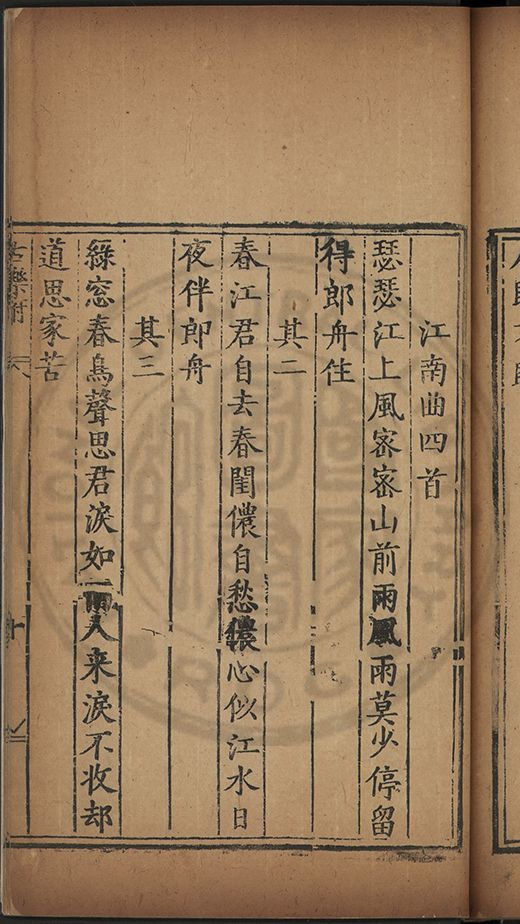 江南曲四首
瑟瑟江上風密密山前雨風雨莫少停留
得郎舟住
其二
春江君自去春閨儂自愁儂心似江水日
夜伴郎舟
其三
綠窓春鳥聲思君淚如雨人来淚不收却
道思家苦
古樂府 六 十